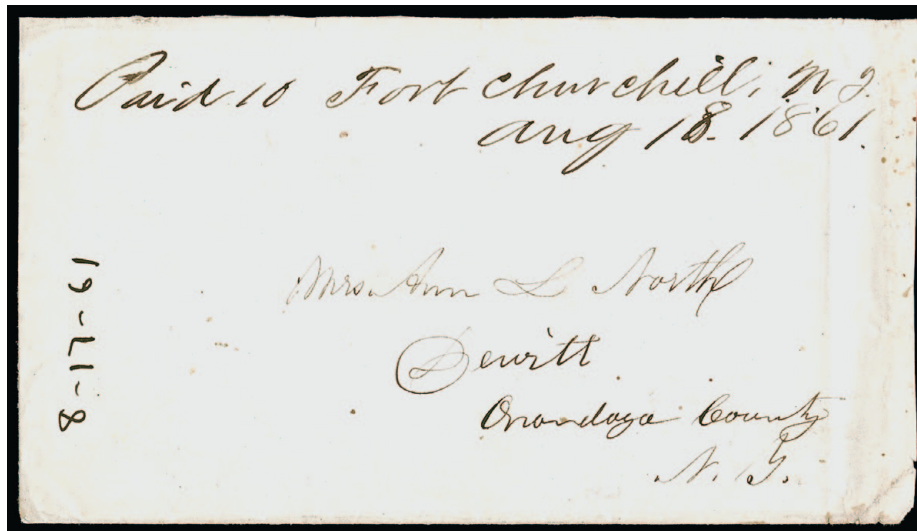 Paid 10 Fort Churchill, N T.
Aug 18. 1861.
Mrs. Ann L North
Dewitt
Onondaga County
N. Y.
8-17-61